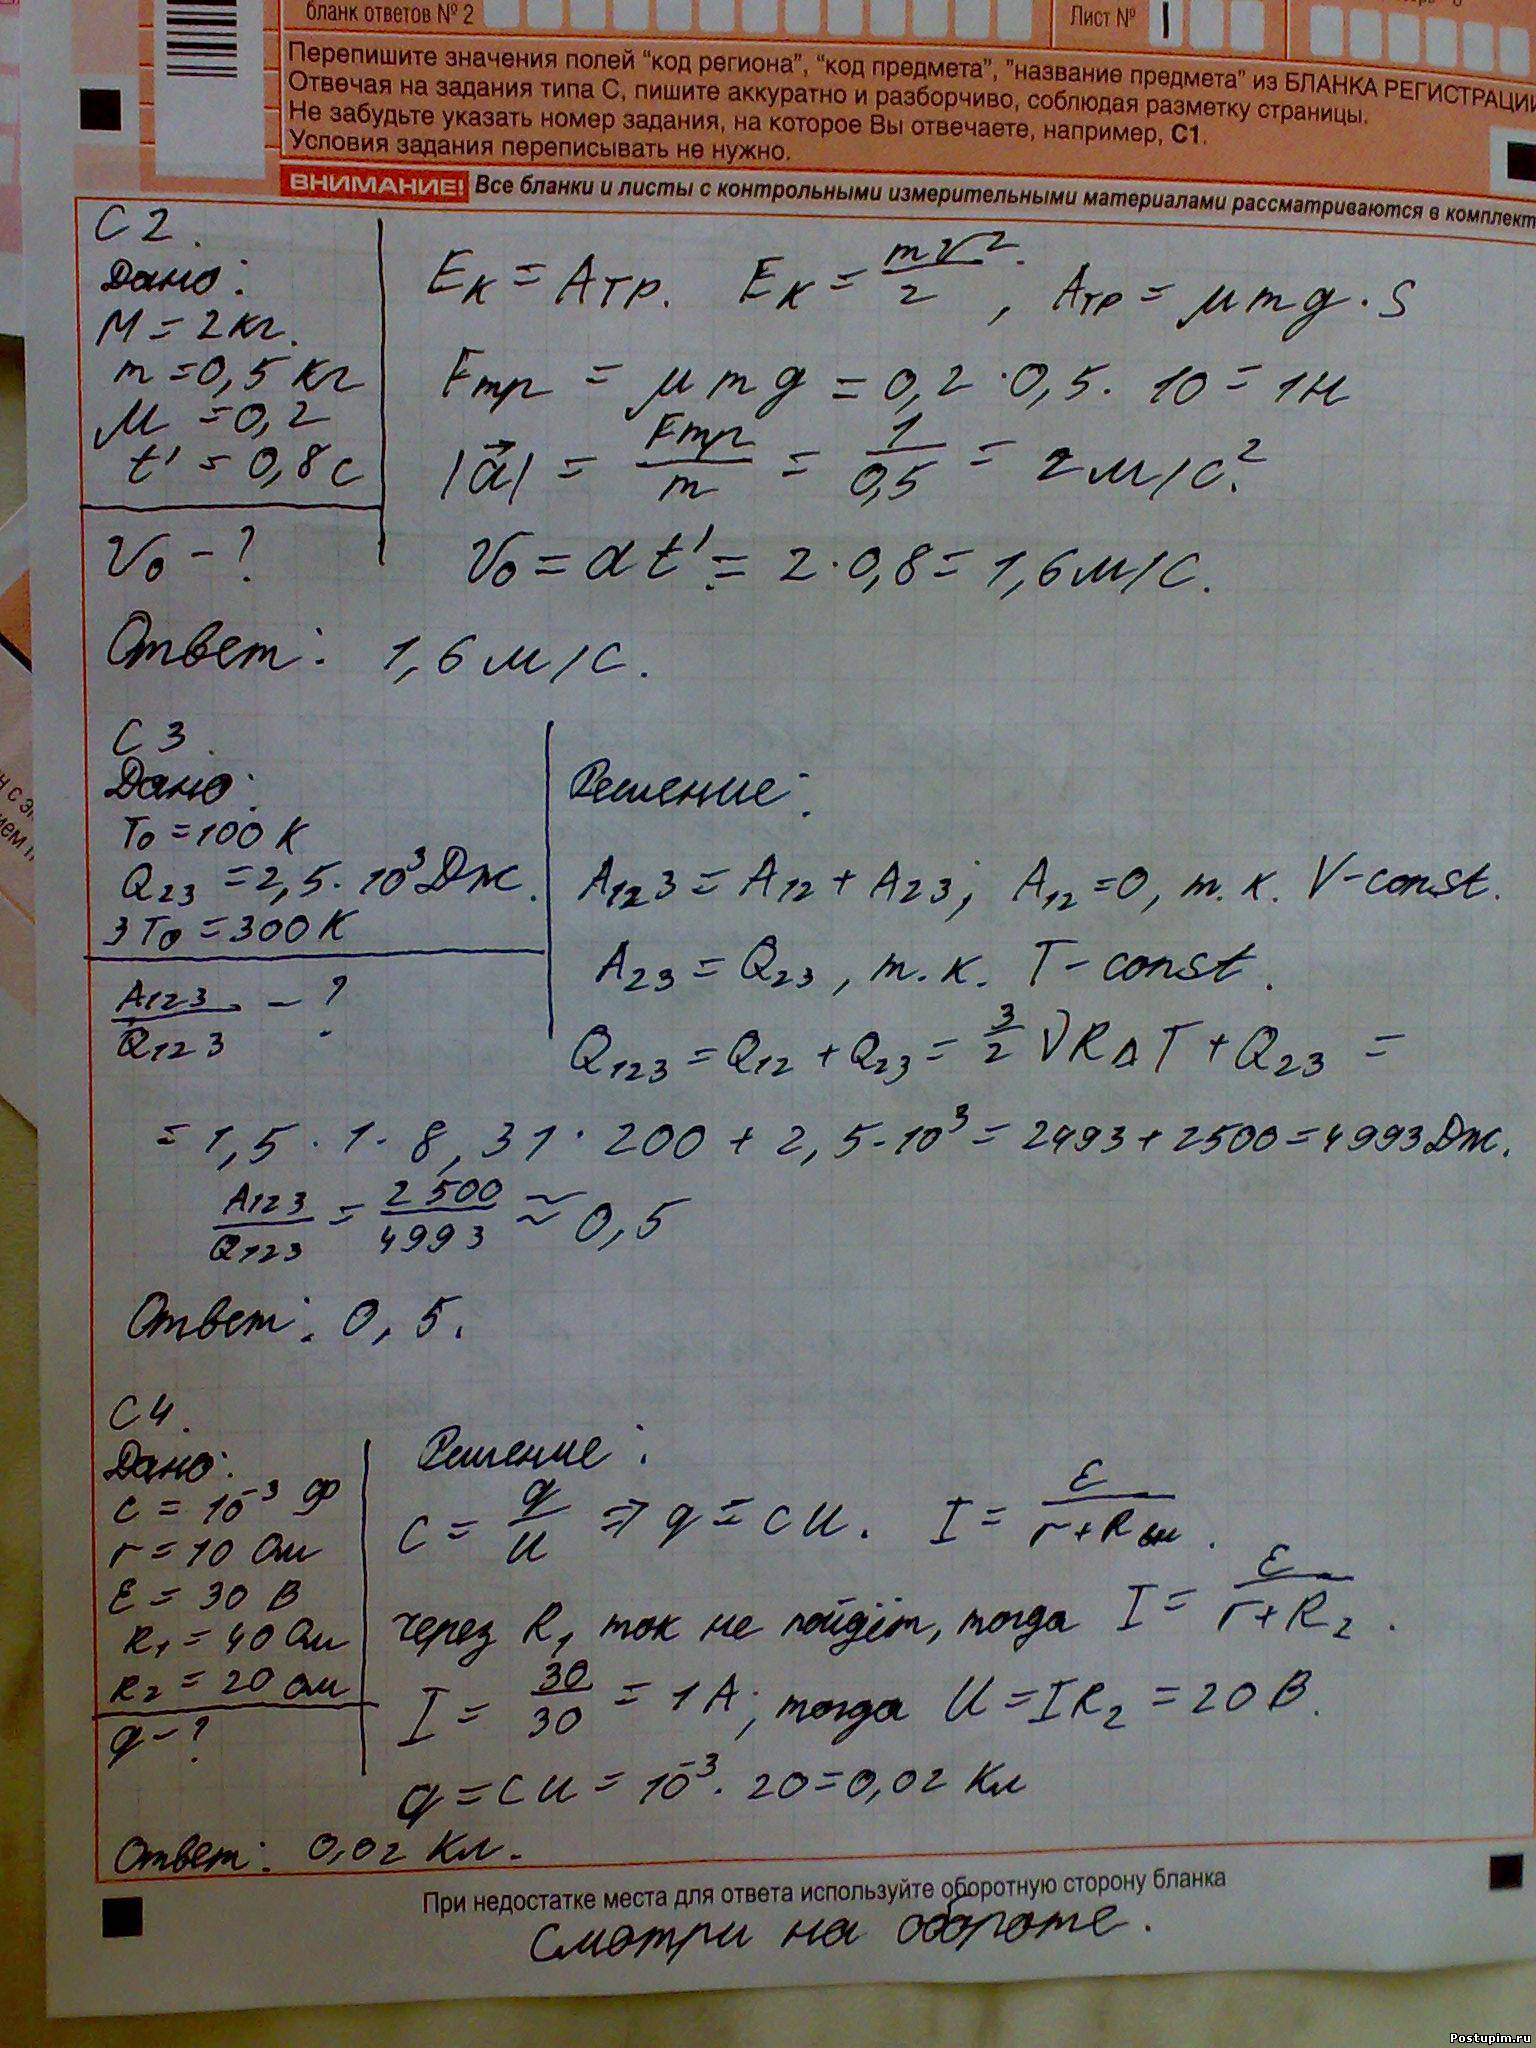 бланк ответов № 2
Лист № 1
Перепишите значения полей "код региона", "код предмета", "название предмета" из БЛАНКА РЕГИСТРАЦИИ
Отвечая на задания типа С, пишите аккуратно и разборчиво, соблюдая разметку страницы.
Не забудьте указать номер задания, на которое Вы отвечаете, например, С1.
Условия задания переписывать не нужно.
ВНИМАНИЕ! Все бланки и листы с контрольными измерительными материалами рассматриваются в комплект
С2.
Дано:
M = 2кг.
m = 0,5 кг
μ = 0,2
t' = 0,8 с
v₀ - ?
Eк = Aтр. Eк = mv²/2, Aтр = μmg·S
Fтр = μmg = 0,2·0,5·10 = 1н
|a⃗| = Fтр/m = 1/0,5 = 2м/с².
v₀ = at' = 2·0,8 = 1,6м/с.
Ответ: 1,6 м/с.
С3.
Дано:
T₀ = 100 К
Q₂₃ = 2,5·10³ Дж.
3T₀ = 300 К
A₁₂₃/Q₁₂₃ - ?
Решение:
A₁₂₃ = A₁₂ + A₂₃; A₁₂ = 0, т.к. V-const.
A₂₃ = Q₂₃, т.к. T-const.
Q₁₂₃ = Q₁₂ + Q₂₃ = 3/2 νRΔT + Q₂₃ =
= 1,5·1·8,31·200 + 2,5·10³ = 2493 + 2500 = 4993 Дж.
A₁₂₃/Q₁₂₃ = 2500/4993 ≈ 0,5
Ответ: 0,5.
С4.
Дано:
C = 10⁻³ Ф
r = 10 Ом
ε = 30 В
R₁ = 40 Ом
R₂ = 20 Ом
q - ?
Решение:
C = q/U ⇒ q = CU. I = ε/(r+Rвн).
через R₁ ток не пойдёт, тогда I = ε/(r+R₂).
I = 30/30 = 1А; тогда U = IR₂ = 20 В.
q = CU = 10⁻³·20 = 0,02 Кл
Ответ: 0,02 Кл.
При недостатке места для ответа используйте оборотную сторону бланка
Смотри на обороте.
Postupim.ru